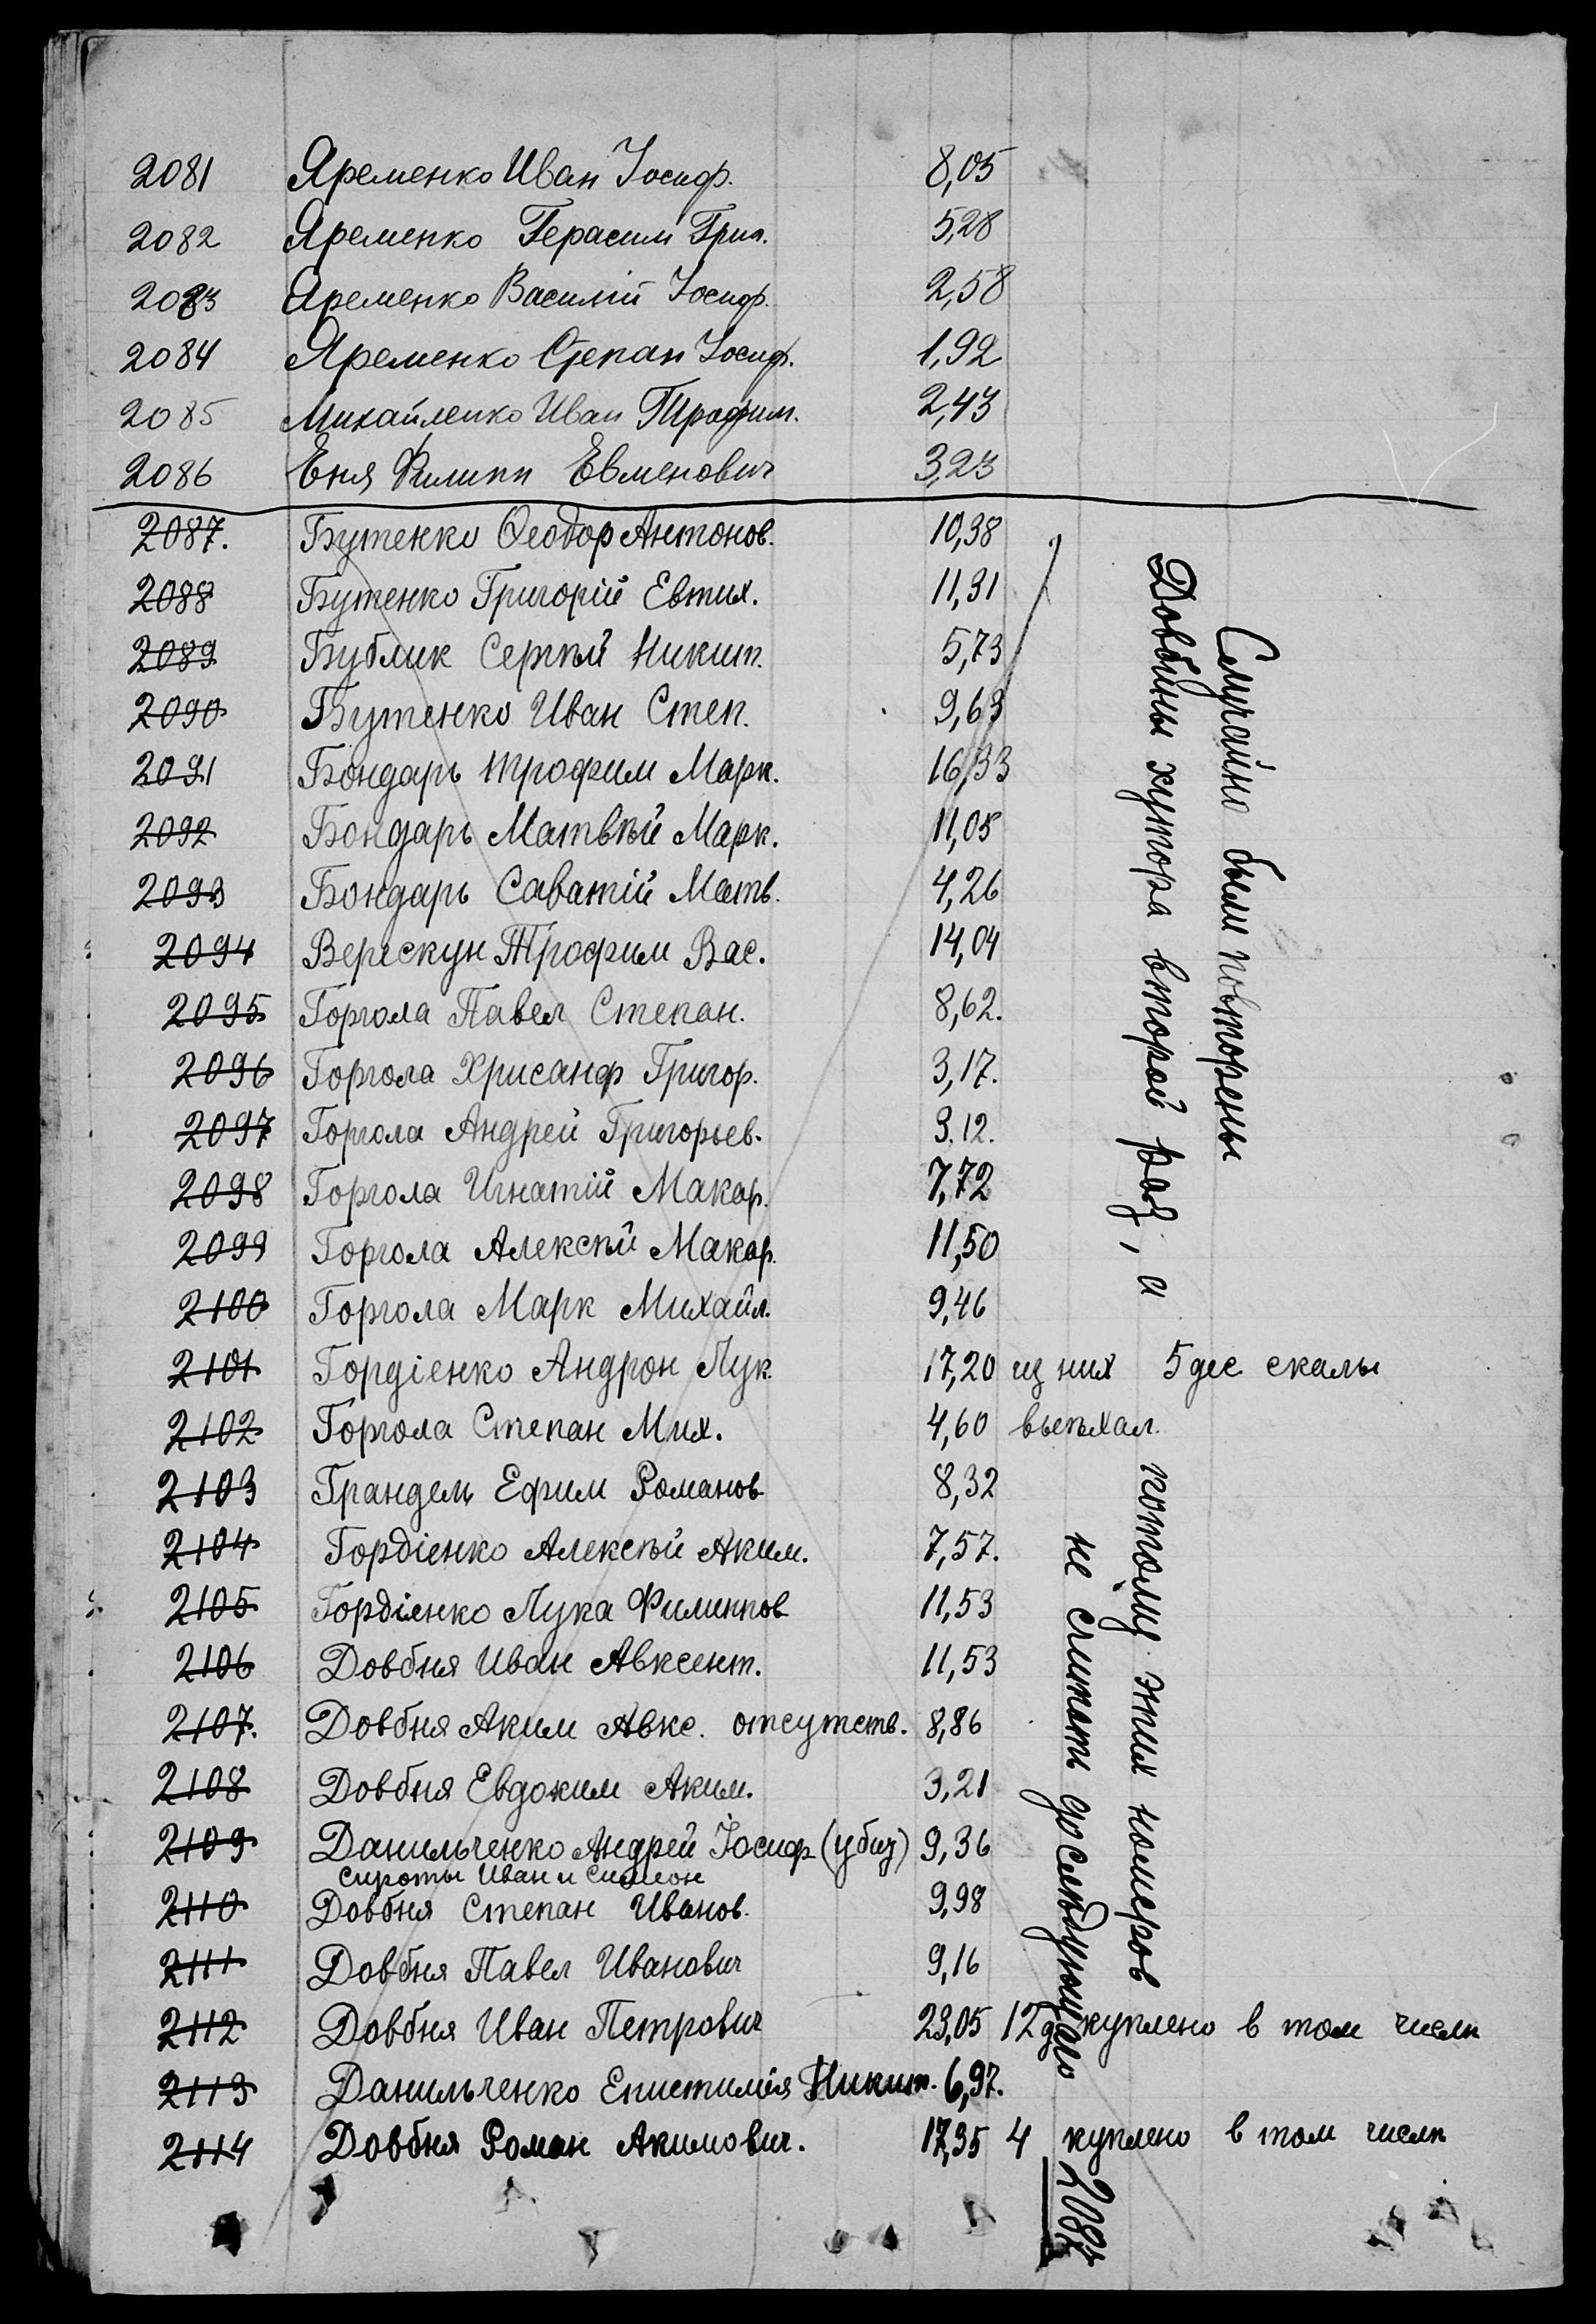 2081 Яременко Иван Іосиф. 8,05
2082 Яременко Герасим Григ. 5,28
2083 Яременко Василій Іосиф. 2,58
2084 Яременко Степан Іосиф. 1,92
2085 Михайленко Иван Трофим. 2,43
2086 Еня Филипп Евменович 3,23
2087. Бутенко Ѳеодор Антонов. 10,38
2088 Бутенко Григорій Евтих. 11,31
2089 Бублик Сергѣй Никит. 5,73
2090 Бутенко Иван Степ. 9,63
2091 Бондарь Трофим Марк. 16,33
2092 Бондарь Матвѣй Марк. 11,05
2093 Бондарь Саватій Матв. 4,26
2094 Верескун Трофим Вас. 14,04
2095 Горгола Павел Степан. 8,62.
2096 Горгола Хрисанф Григор. 3,17.
2097 Горгола Андрей Григорьев. 3.12.
2098 Горгола Игнатій Макар. 7,72
2099 Горгола Алексѣй Макар. 11,50
2100 Горгола Марк Михайл. 9,46
2101 Гордіенко Андрон Лук. 17,20 из них 5 дес скалы
2102 Горгола Степан Мих. 4,60 выѣхал.
2103 Грандель Ефим Романов 8,32
2104 Гордіенко Алексѣй Аким. 7,57.
2105 Гордіенко Лука Филиппов 11,53
2106 Довбня Иван Авксент. 11,53
2107. Довбня Аким Авкс. отсутств. 8,86
2108 Довбня Евдоким Аким. 3,21
2109 Данильченко Андрей Іосиф (убит) 9,36
сироты Иван и Симеон
2110 Довбня Степан Иванов. 9,98
2111 Довбня Павел Иванович 9,16
2112 Довбня Иван Петрович 23,05 12 д куплено в том числѣ
2113 Данильченко Епистимія Никит. 6,97.
2114 Довбня Роман Акимович. 17,35 4 куплено в том числѣ
Случайно были повторены
Довбины хутора второй раз, а
потому этих номеров
не считать до слѣдующаго
2087